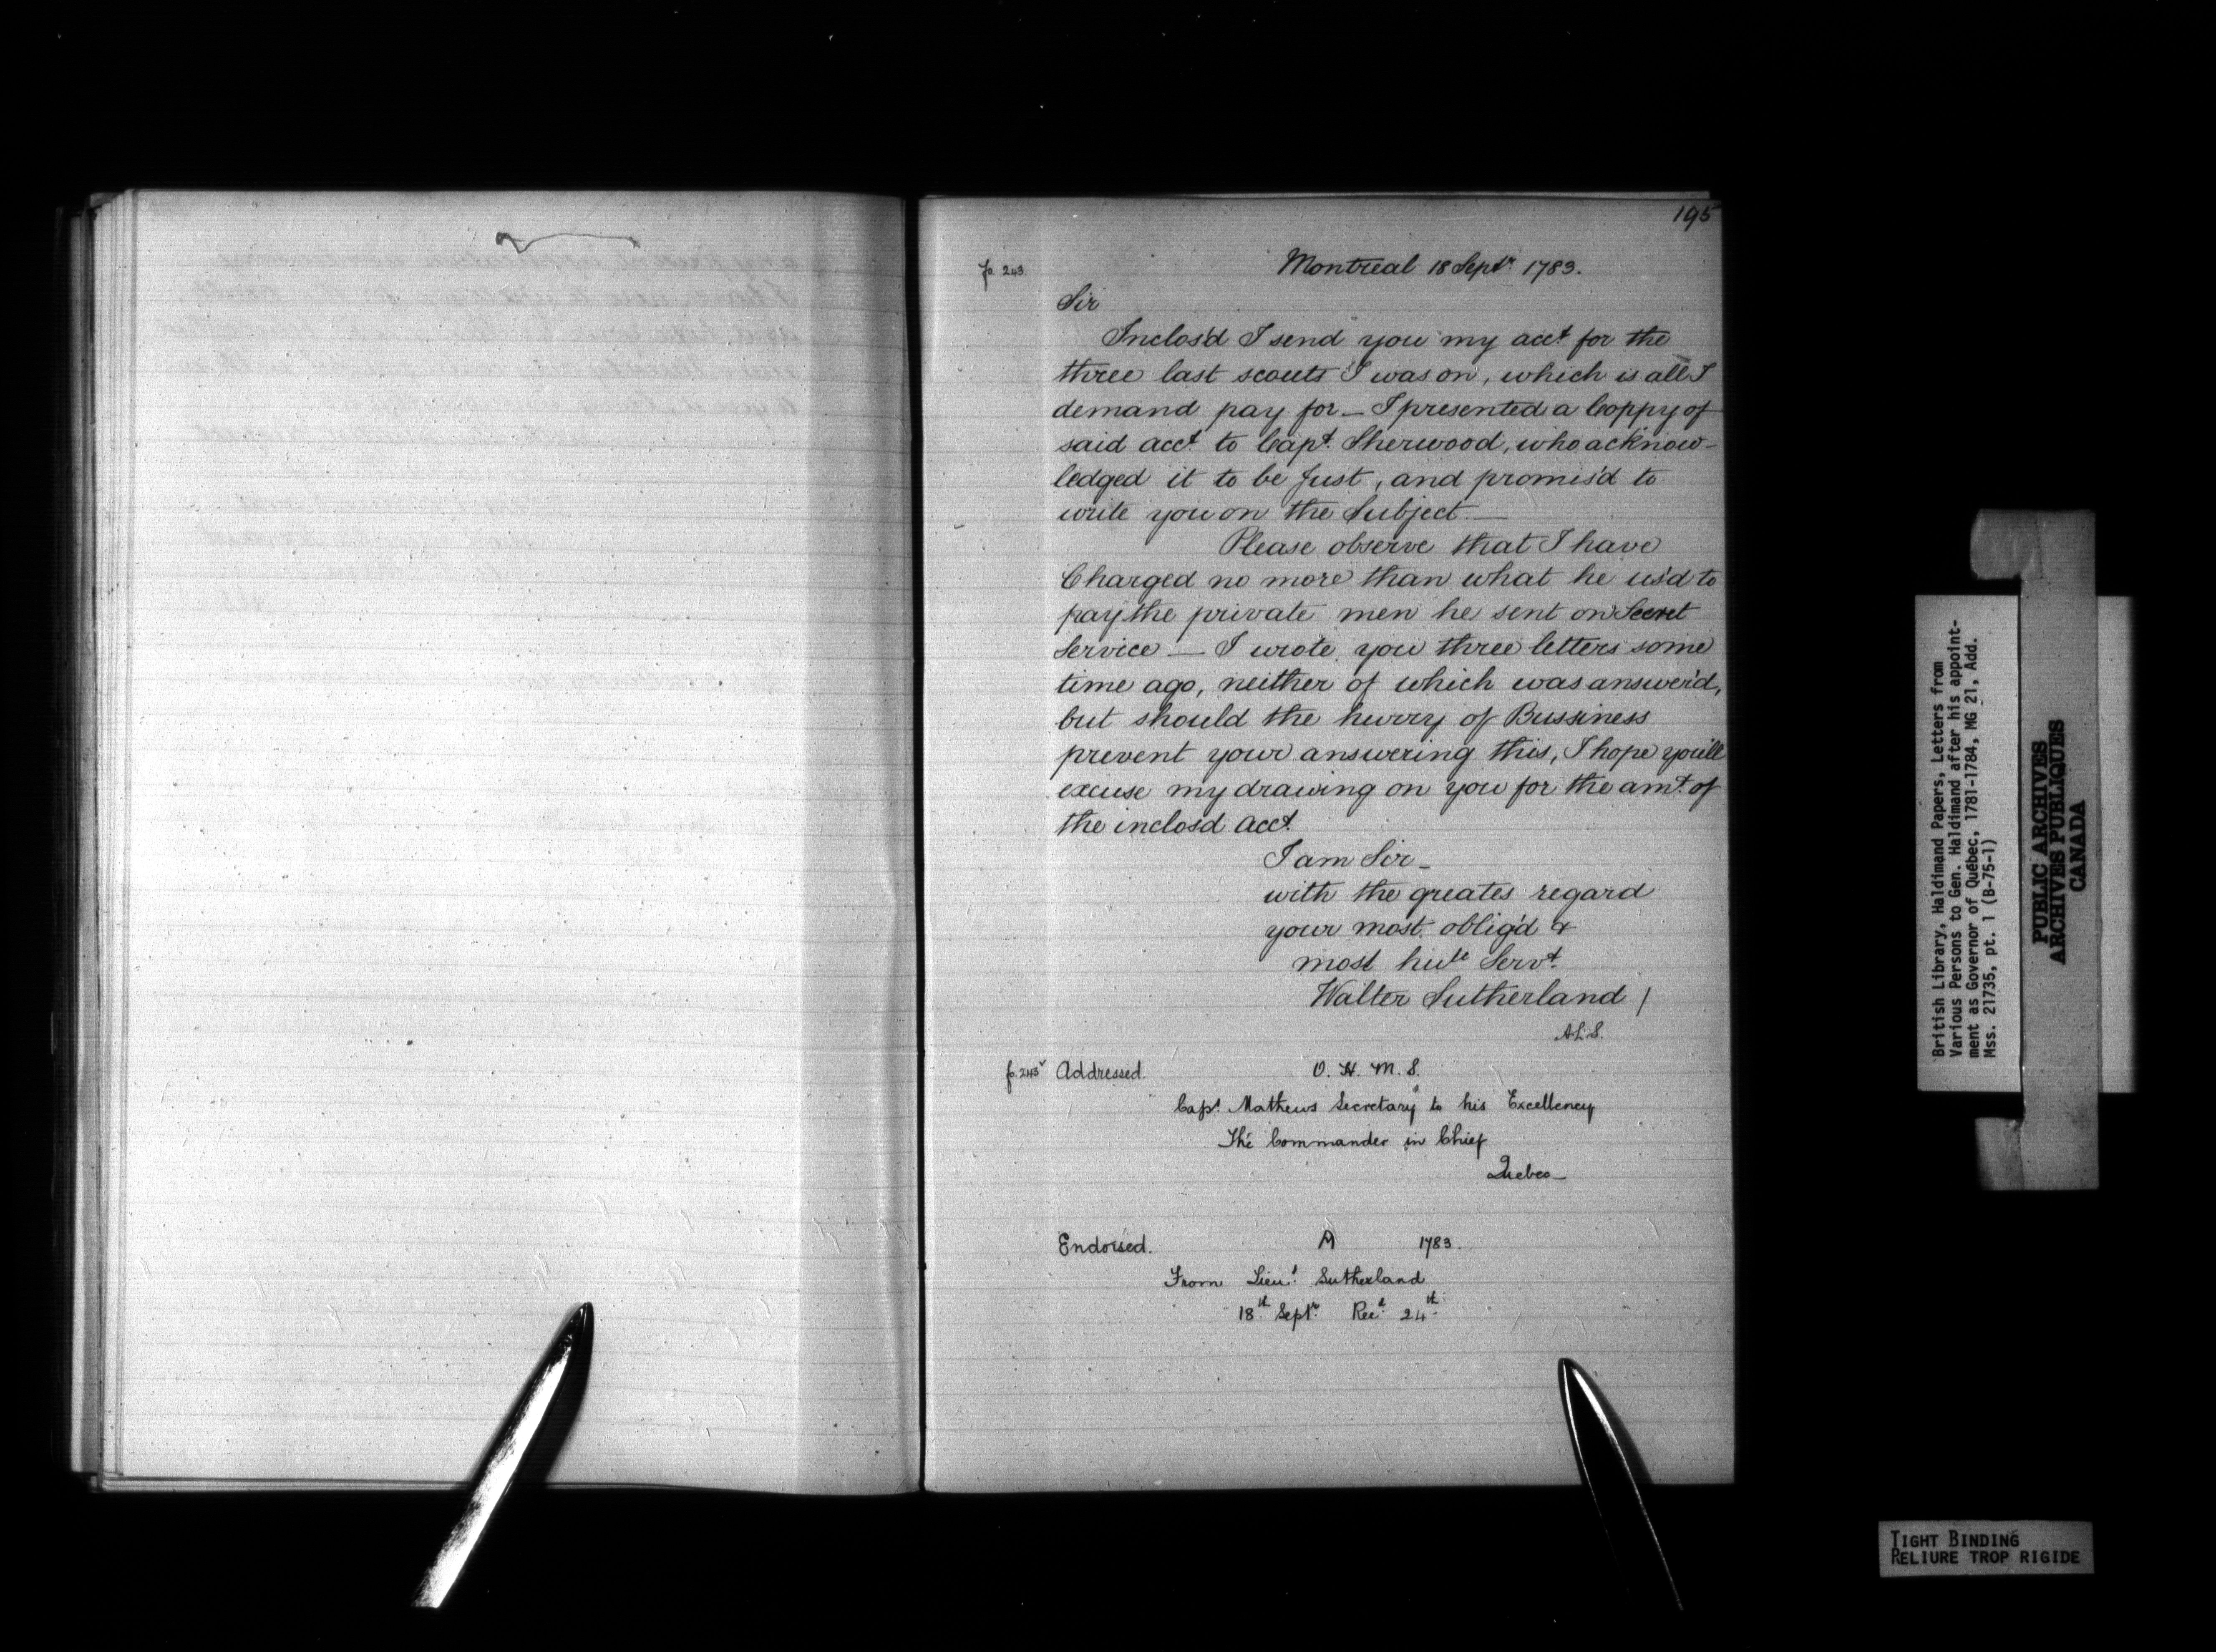 195
fo. 243.
Montreal 18 Septr. 1783.
Sir
Inclos'd I send you my acct. for the
three last scouts I was on, which is all I
demand pay for — I presented a Coppy of
said acct. to Capt. Sherwood, who acknow-
ledged it to be Just, and promis'd to
write you on the Subject. —
Please observe that I have
Charged no more than what he us'd to
pay the private men he sent on Secret
Service — I wrote you three letters some
time ago, neither of which was answer'd,
but should the hurry of Bussiness
prevent your answering this, I hope you'll
excuse my drawing on you for the amt. of
the inclos'd acct.
I am Sir —
with the greates regard
your most oblig'd &
most hule Servt.
Walter Sutherland /
A.L.S.
fo. 243v Addressed. O. H. M. S.
Capt. Mathews Secretary to his Excellency
The Commander in Chief
Quebec —
Endorsed. A 1783.
From Lieut. Sutherland
18th Septr. Recd. 24th.
British Library, Haldimand Papers, Letters from
Various Persons to Gen. Haldimand after his appoint-
ment as Governor of Québec, 1781-1784, MG 21, Add.
Mss. 21735, pt. 1 (B-75-1)
PUBLIC ARCHIVES
ARCHIVES PUBLIQUES
CANADA
TIGHT BINDING
RELIURE TROP RIGIDE